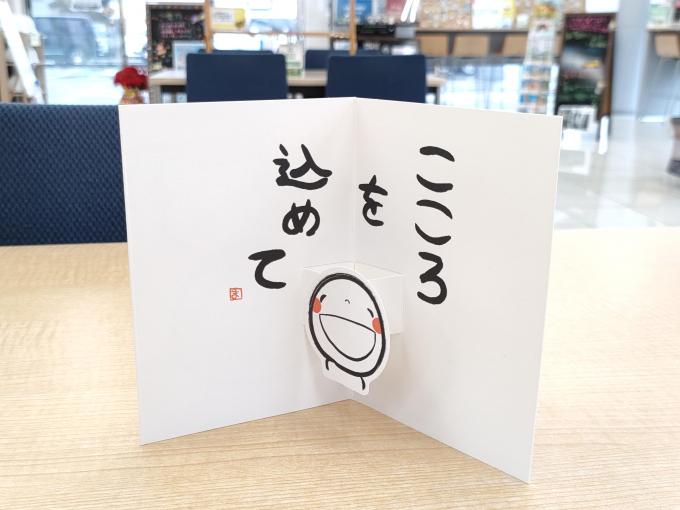 こころ
を
込めて
ま